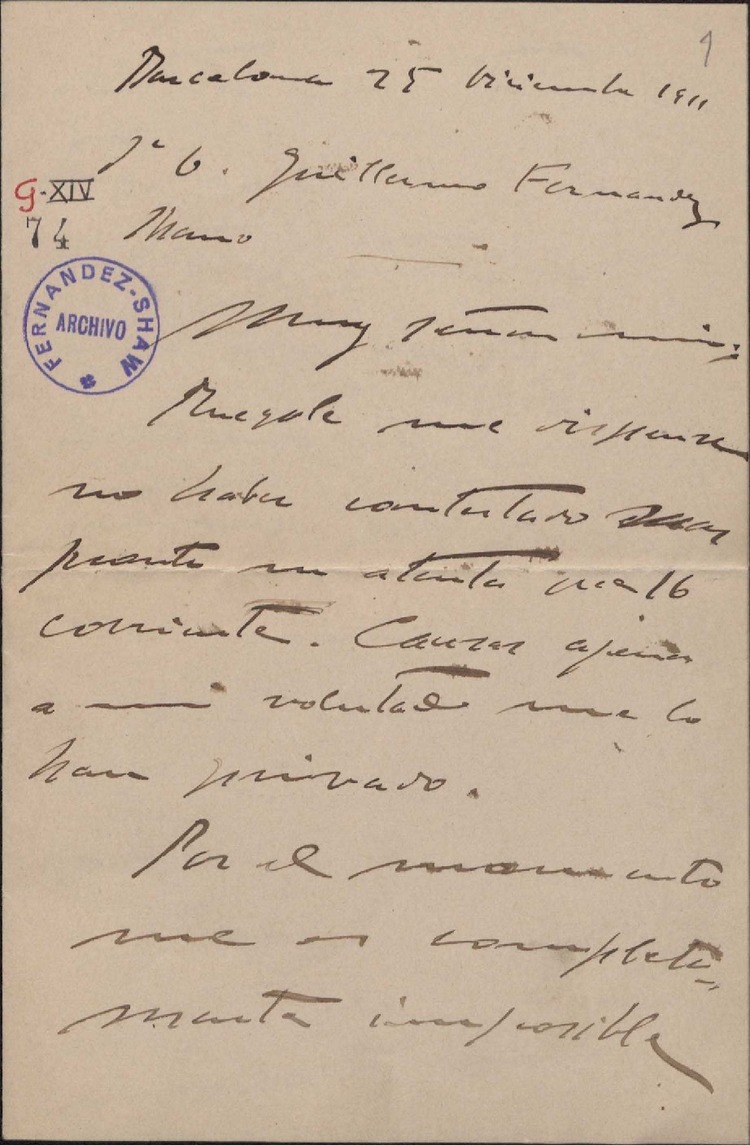 1
Barcelona 25 Diciembre 1911
Sr D. Guillermo Fernandez
G-XIV
74
Shaw
FERNANDEZ-SHAW
ARCHIVO
Muy señor mio;
Ruegole me dispense
no haber contestado mas
pronto su atenta del 16
corriente. Causas ajenas
a mi voluntad me lo
han privado.
Por el momento
me es completa-
mente imposible